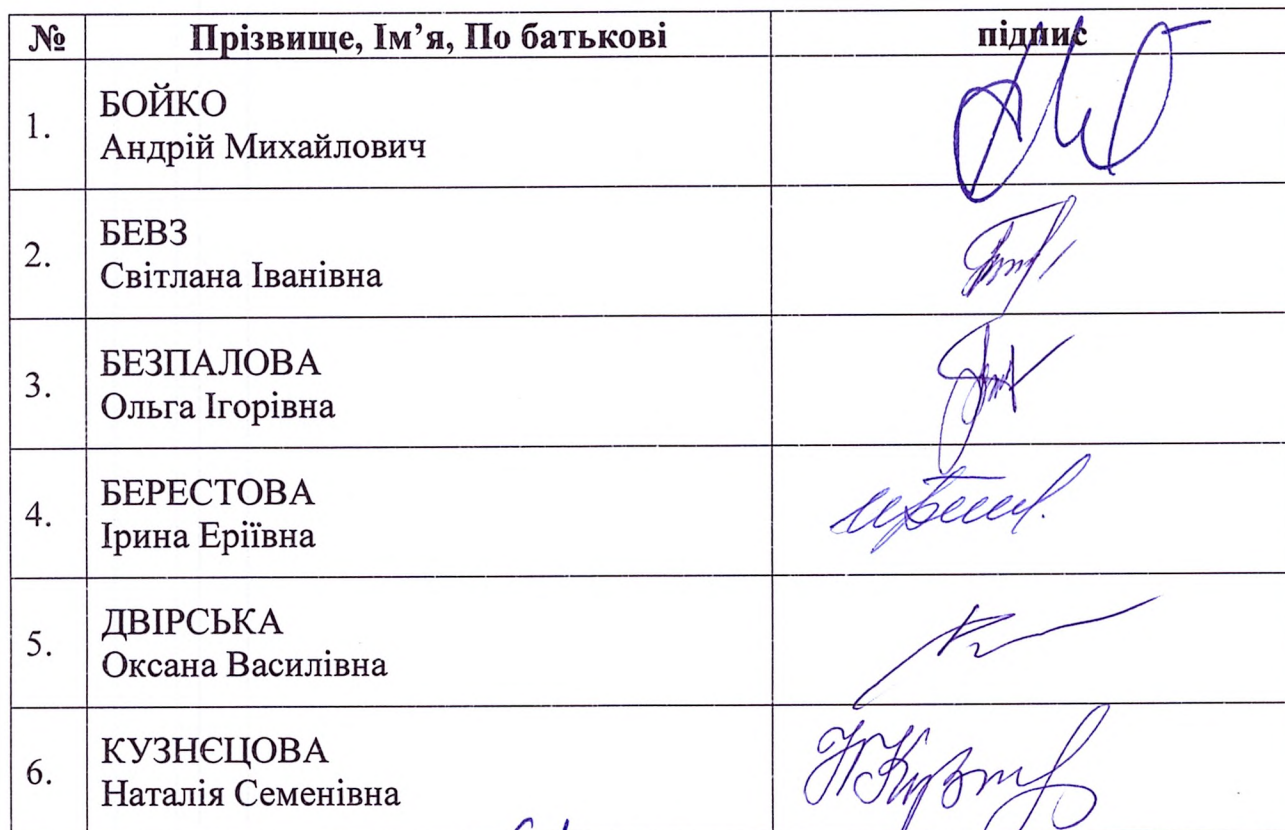 № Прізвище, Ім’я, По батькові підпис
1. БОЙКО
Андрій Михайлович
2. БЕВЗ
Світлана Іванівна
3. БЕЗПАЛОВА
Ольга Ігорівна
4. БЕРЕСТОВА
Ірина Еріївна
5. ДВІРСЬКА
Оксана Василівна
6. КУЗНЄЦОВА
Наталія Семенівна